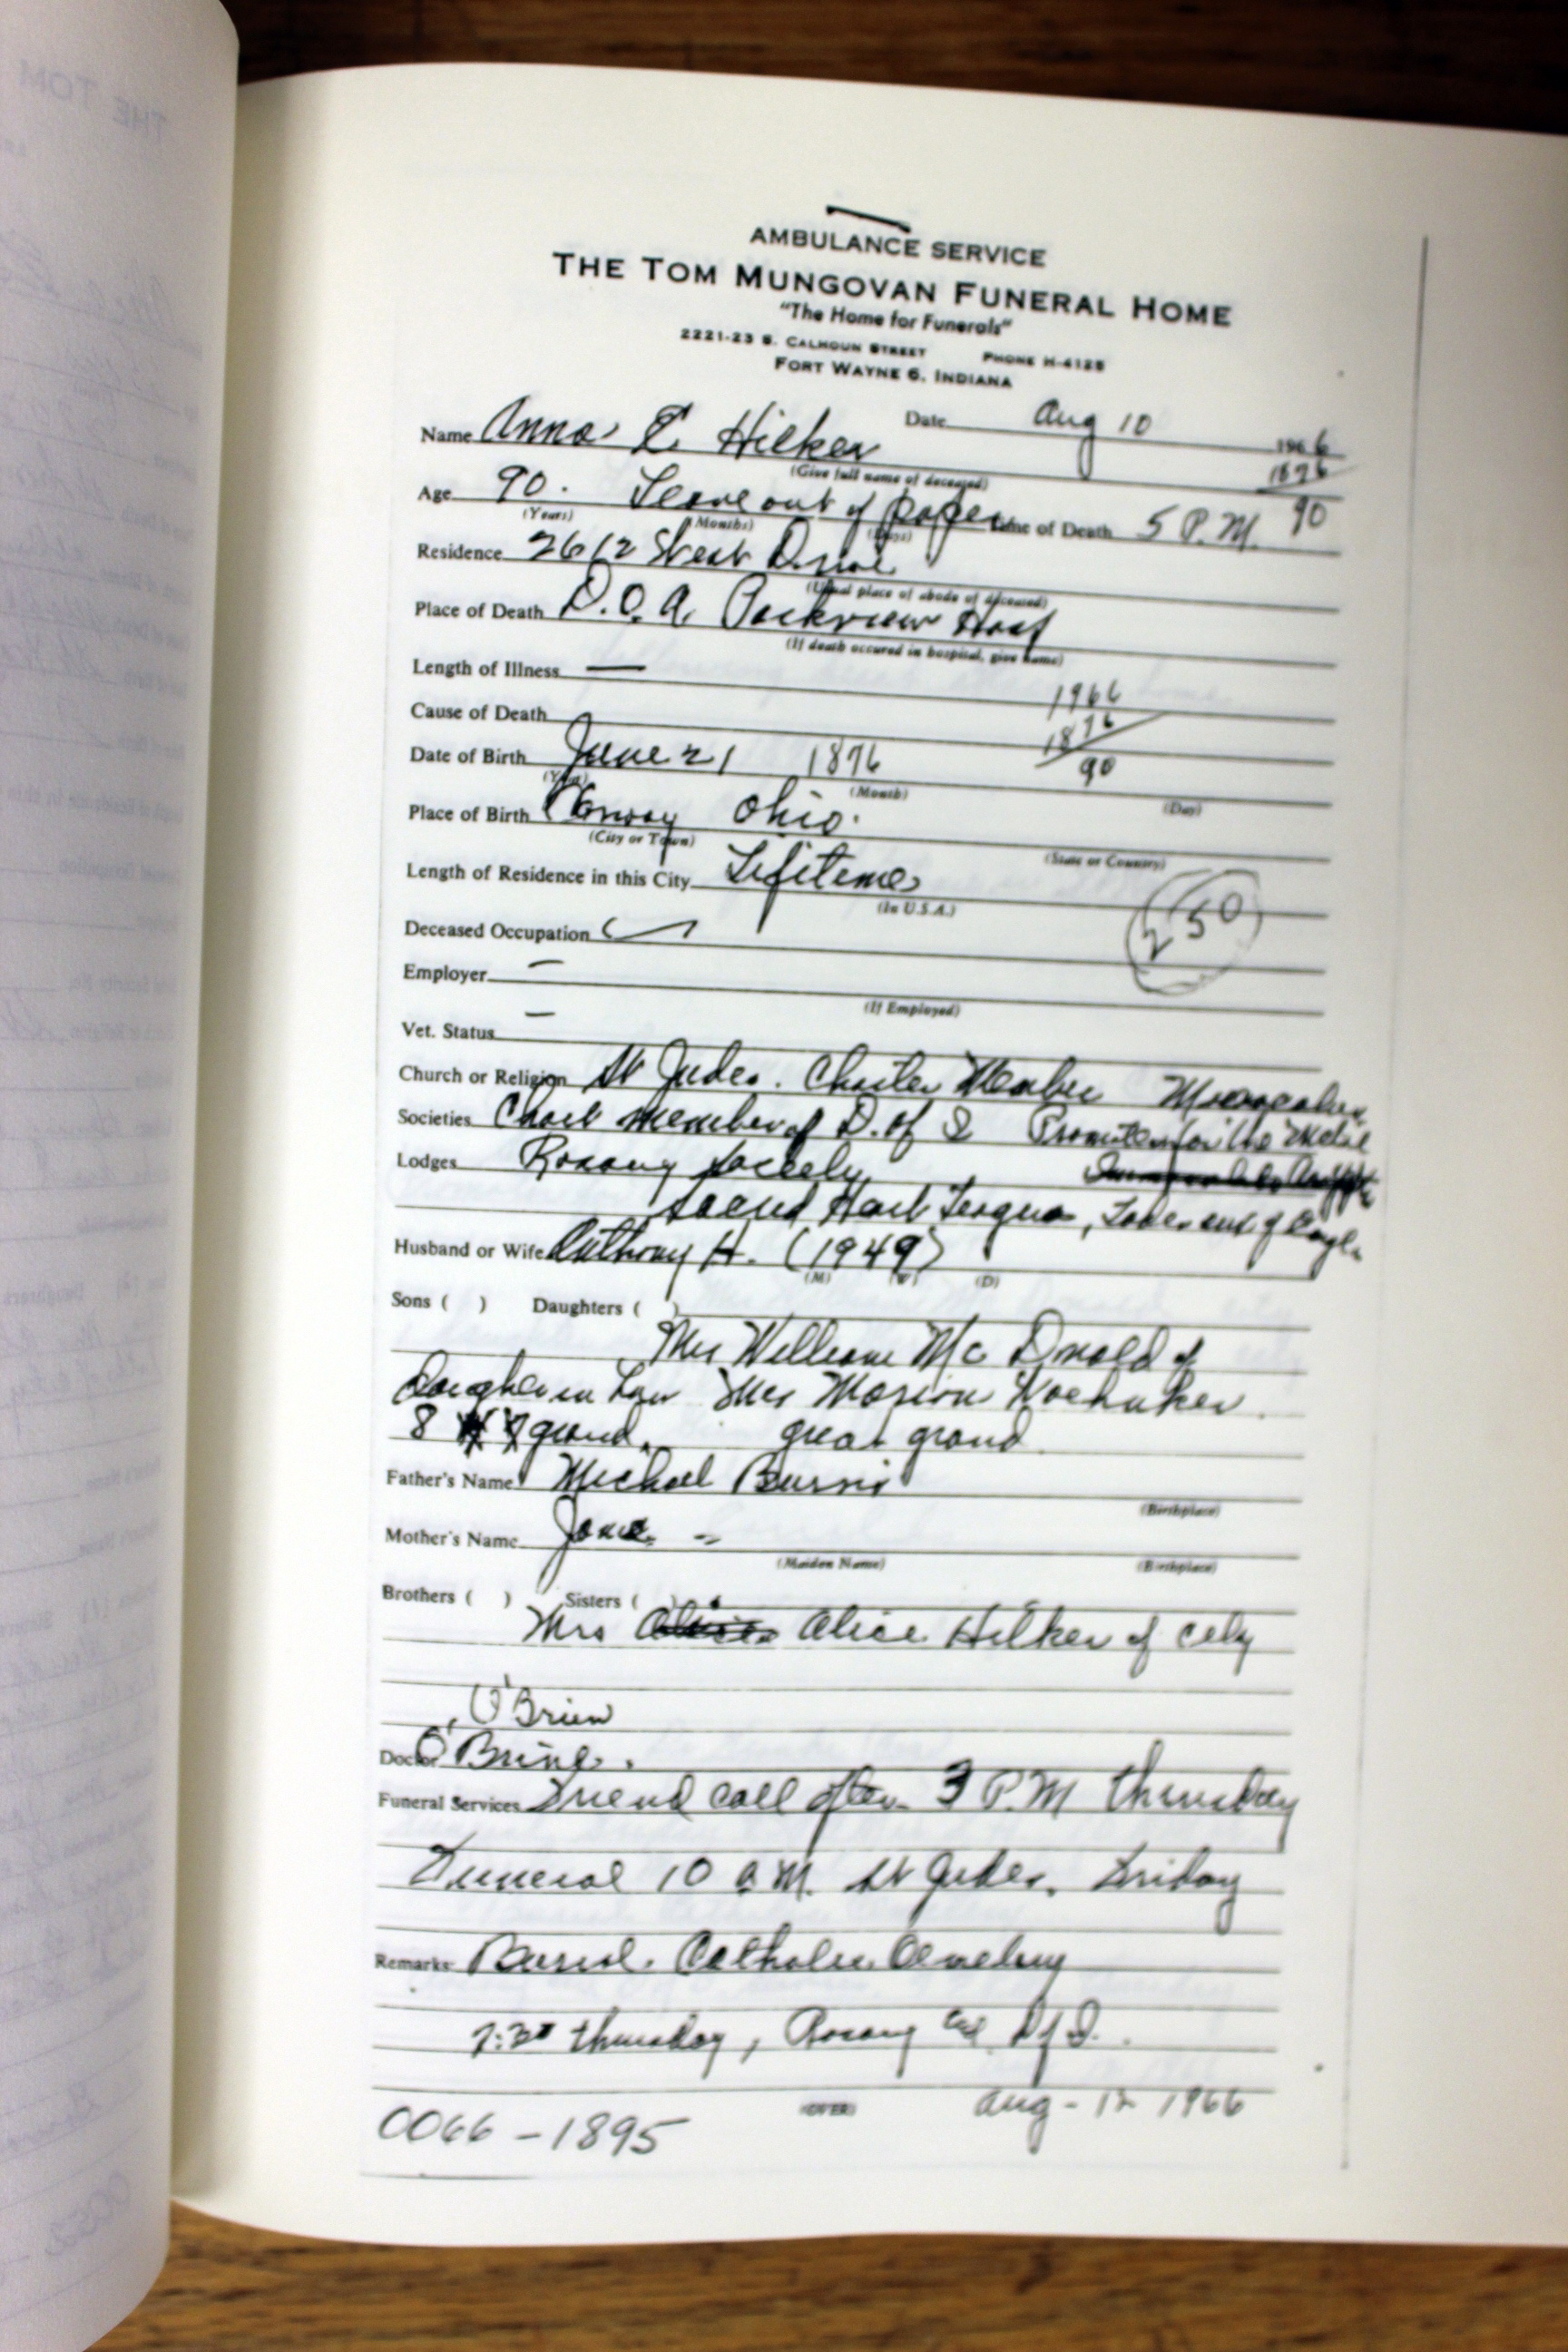 AMBULANCE SERVICE
THE TOM MUNGOVAN FUNERAL HOME
"The Home for Funerals"
2221-23 S. CALHOUN STREET PHONE H-4125
FORT WAYNE 6, INDIANA
Name Anna E. Hilker Date Aug 10 1966
(Give full name of deceased) 1876
Age 90. Leave out of paper Time of Death 5 P.M. 90
(Years) (Months) (Days)
Residence 2612 West Drive
(Usual place of abode of deceased)
Place of Death D.O.A. Parkview Hosp
(If death occured in hospital, give name)
Length of Illness — 1966
Cause of Death 1876
Date of Birth June 21 1876 90
(Year) (Month) (Day)
Place of Birth Conway Ohio.
(City or Town) (State or Country)
Length of Residence in this City Lifetime
(In U.S.A.)
250
Deceased Occupation
Employer —
(If Employed)
Vet. Status —
Church or Religion St Judes. Charter Member
Societies Chart member of D. of I Promoter for the
Lodges Rosary Society
Sacred Heart League,
Husband or Wife Anthony H. (1949)
(M) (W) (D)
Sons ( ) Daughters ( )
Mrs William Mc Donald of
Daughter in Law Mrs Marion
8 grand, great grand
Father's Name Michael Burns
(Birthplace)
Mother's Name Jane –
(Maiden Name) (Birthplace)
Brothers ( ) Sisters ( )
Mrs Alice Hilker of city
O'Brien
Doctor O'Brine.
Funeral Services Friend call after 3 P.M Thursday
Funeral 10 a M. St Judes. Friday
Remarks Burial. Catholic Cemetery
7:30 Thursday, Rosary D of I.
(OVER) Aug - 12 1966
0066 - 1895